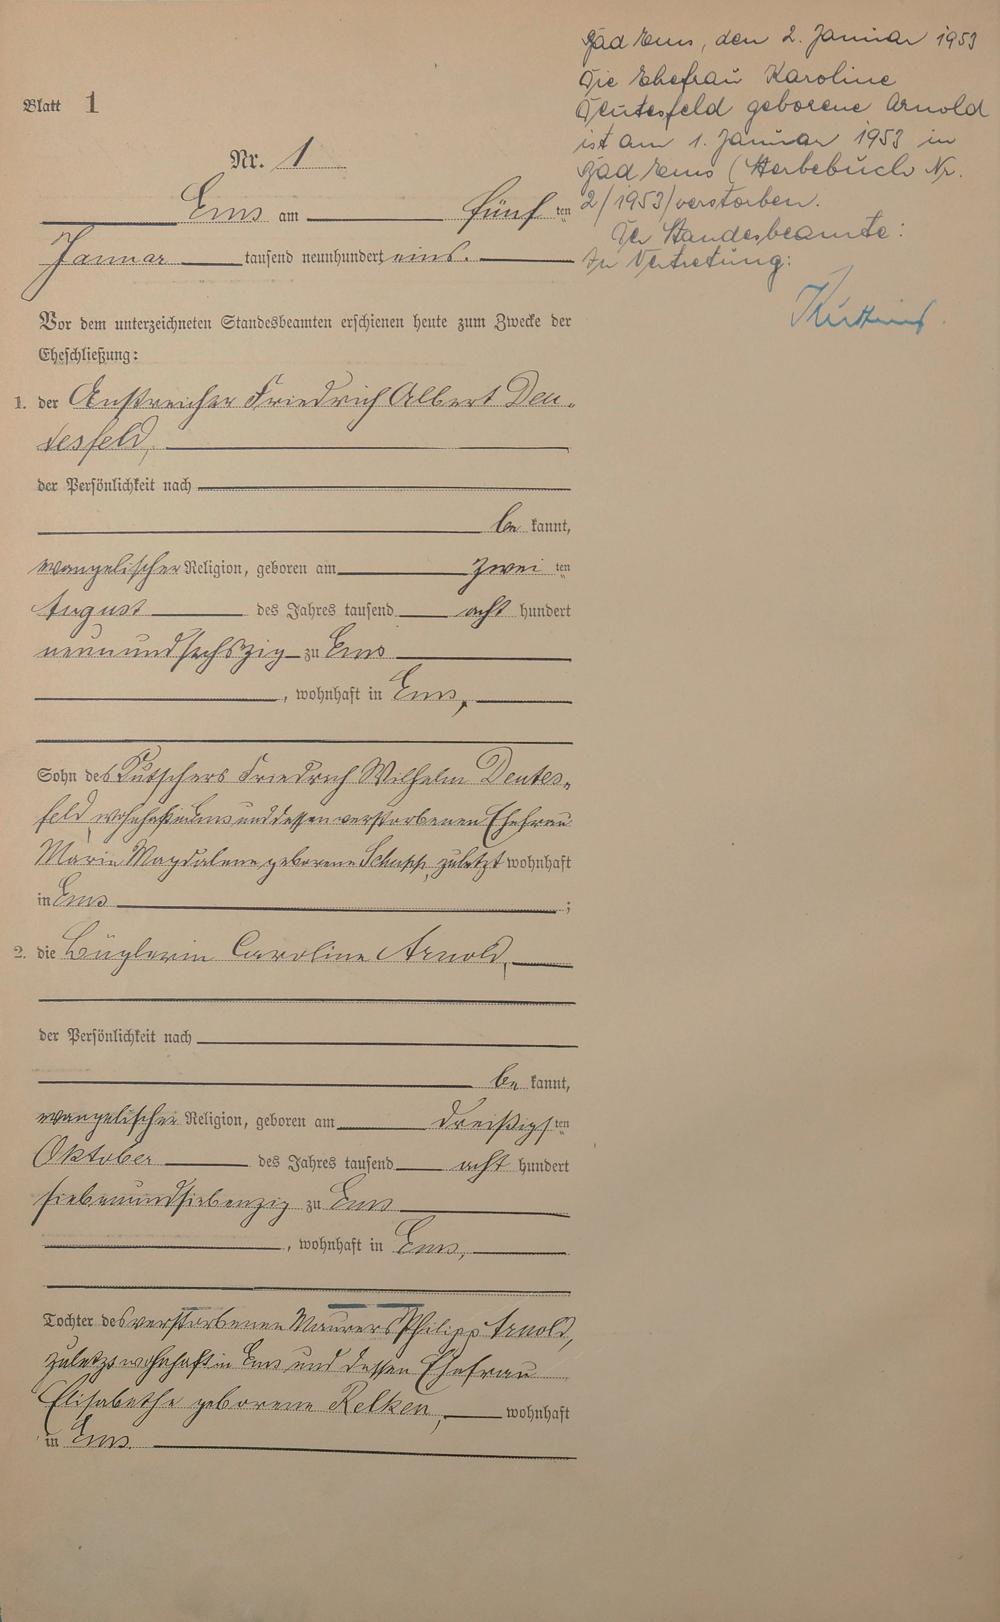 Blatt 1
Nr. 1
Ems am fünf ten
Januar tausend neunhundert eins.
Vor dem unterzeichneten Standesbeamten erschienen heute zum Zwecke der
Eheschließung:
1. der Anstreicher Friedrich Albert Deu-
tesfeld,
der Persönlichkeit nach
be kannt,
evangelischer Religion, geboren am zwei ten
August des Jahres tausend acht hundert
neunundsechszig zu Ems
, wohnhaft in Ems,
Sohn des Kutschers Friedrich Wilhelm Deutes-
feld, wohnhaft in Ems und dessen verstorbenen Ehefrau
Marie Magdalene geborene Schupp, zuletzt wohnhaft
in Ems ;
2. die Büglerin Caroline Arnold,
der Persönlichkeit nach
be kannt,
evangelischer Religion, geboren am dreißigs ten
Oktober des Jahres tausend acht hundert
siebenundsiebenzig zu Ems
, wohnhaft in Ems,
Tochter des verstorbenen Maurers Philipp Arnold,
zuletzt wohnhaft in Ems und dessen Ehefrau
Elisabethe geborene Relken, wohnhaft
in Ems.
Bad Ems, den 2. Januar 1953
Die Ehefrau Karoline
Deutesfeld geborene Arnold
ist am 1. Januar 1953 in
Bad Ems (Sterbebuch Nr.
2/1953) verstorben.
Der Standesbeamte:
In Vertretung: